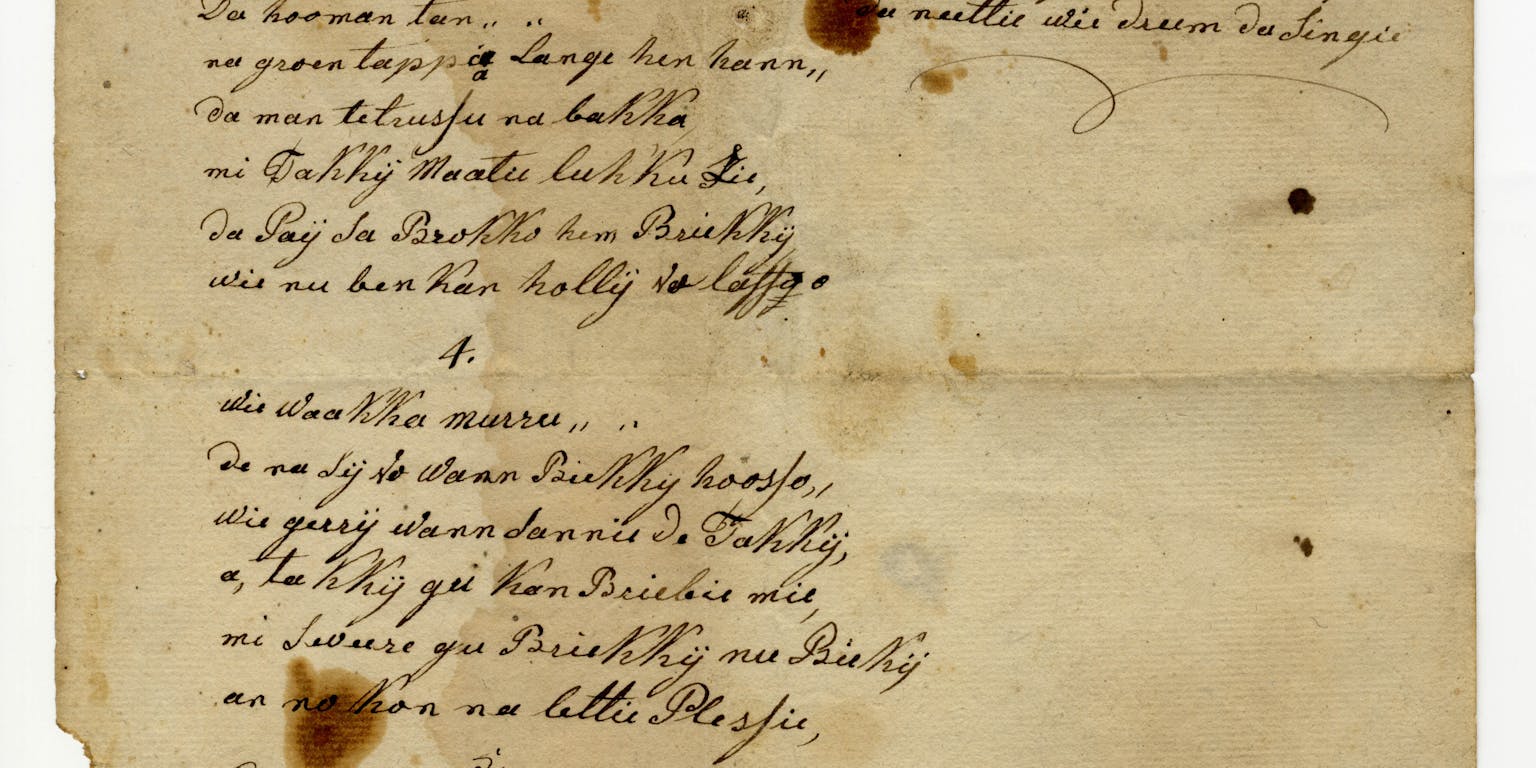 Da hooman tan,, ,,
na groen tappa Lange hen hann,,
da man tetrussu na bakka
mi Takkij Maatie luk'ku Sie,
da Paij Sa Brokko hem Briekkij
wie nu ben kan hollij vo laffo
4.
wie waakka murru,, ,,
de na Sij vo wann Biekkij hoosso,,
wie gerrij wann Sannie de Takkij,
a, takkij gu kan Briebie mie,
mi Sweere gu Briekkij nu Biekij
an no kon na lettie Plessie,
da neettie wie drum da Singie